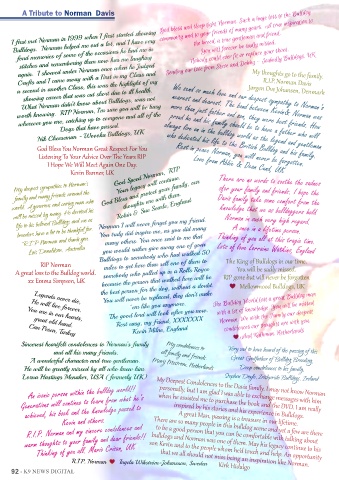 A Tribute to Norman Davis
I first met Norman in 1999 when I first started showing
Bulldogs. Norman helped me out a lot, and I have very
fond memories of some of the occasions he had me in
stitches and remembering them now has me laughing
again. I showed under Norman once when he judged
Crufts and I came away with a First in my Class and
a second in another Class, this was the highlight of my
showing career that was cut short due to ill health.
What Norman didn't know about Bulldogs, was not
worth knowing. RIP Norman, I'm sure you will be busy
wherever you are, catching up to congour and all of the
Dogs that have passed.
God Bless You Norman Great Respect For You
Listening To Your Advice Over The Years RIP
I Hope We Will Meet Again One Day.
Kevin Bonner, UK
God bless and sleep tight Norman. Such a huge loss to the Bulldog
community and to your friends of many years.
Nobody could ever fit or replace your shoes.
Sending our love from Steve and Debby - Bulldogs, UK
My thoughts go to the family.
R.I.P Norman Davis
Jorgen Due Johansen, Denmark
We send so much love and our deepest sympathy to Norman's
nearest and dearest. The bond between Norman was
more than just father and son, they were best friends. How
proud he and his family should be to have a father who will
always live on in the bulldog world as the legend and gentleman
who dedicated his life to the British Bulldog and his family.
Rest in peace Norman, you will never be forgotten.
Love from Abbie & Dean Cund, UK
God Speed Norman, RIP
Your legacy will continue.
God Bless and protect your family, our
thoughts are with them.
Robin & Sue Smith, England
My deepest sympathies to Norman's
family and many friends around the
world. A generous and caring man who
will be missed by many. He devoted his
life to his beloved Bulldogs and we in
R.I.P Norman and thank you
Australia
There are no words to soothe the sadness
for your family and friends. I hope the
Davis family take some comfort from the
knowledge that us as bulldoggers hold
Norman in such very high regard.
A once in a lifetime person
Thinking of you all at this tragic time.
Lots of love Lorraine Watkins, England
RIP Norman
A great loss to the Bulldog world.
xx Emma Simpson, UK
Norman I will never forget you my friend.
You truly did inspire me, as you did many
many others. You once said to me that
you would rather give away one of your
Bulldogs to somebody who had walked 50
miles to get here than sell one of them to
somebody who pulled up in a Rolls Royce
because the person that walked here will be
the best person for the dog, without a doubt.
You will never be replaced, they don't make
em like you anymore.
The good lord will look after you now.
Rest easy, my friend. XXXXXXX
Kevin Milin, England
The King of Bulldogs in our time.
You will be sadly missed.
RIP gone but will never be forgotten
Mellowwood Bulldogs, UK
Legends never die,
He will live forever.
You are in our hearts,
great old hand.
Can Pasin, Turkey
The Bulldog World lost a great Bulldog man
with a lot of knowledge, you will be missed
Norman. We wish the family our deepest
condolences our thoughts are with you.
Netherlands
Sincerest heartfelt condolences to Norman's family
and all his many friends.
A wonderful character and true gentleman.
He will be greatly missed by all who knew him.
Lorna Hastings Manaker, USA (formerly UK)
My condolences to
all family and friends.
Very sad to have heard of the passing of this
Great Godfather of Bulldog Breeding.
Deep condolences to his family.
Daphne Doyle, Bulldogs, Ireland
An iconic person within the bulldog world!!
Generations will continue to learn from what he's
achieved, his book and the knowledge passed to
Kevin and others.
R.I.P. Norman and my sincere condolences and
warm thoughts to your family and dear friends!!
Thinking of you all. Mario Cason, UK
R.I.P. Norman Tayda Wikstrom-Johansson, Sweden
My Deepest Condolences to the Davis family. I may not know Norman
personally, but I am glad I was able to exchange messages with him
when he assisted me to purchase the book and the DVD. I am really
inspired by his stories and his experience in Bulldogs.
A great Man, passing is a treasure in my lifetime.
There are so many people in this bulldog scene and yet a few are there
to be a good person that you can be comfortable with talking about
bulldogs and Norman was one of them. May his legacy continue to his
son Kevin and to the people whom he'd touch and help. An opportunity
that we all should not miss losing an inspiration like Norman.
Kirk Hidalgo
92 - K9 NEWS DIGITAL